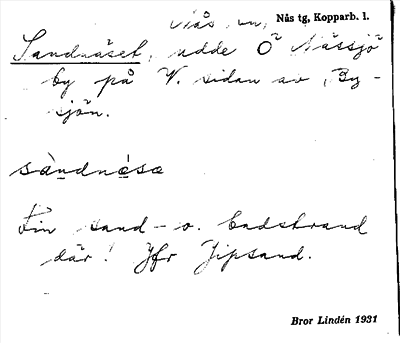 Nås sn, Nås tg, Kopparb. l.
Sandnäset, udde Ö Nässjö
by på V. sidan av By-
sjön.
sàndnésə
Fin sand- o. badstrand
där! Jfr Jipsand.
Bror Lindén 1931